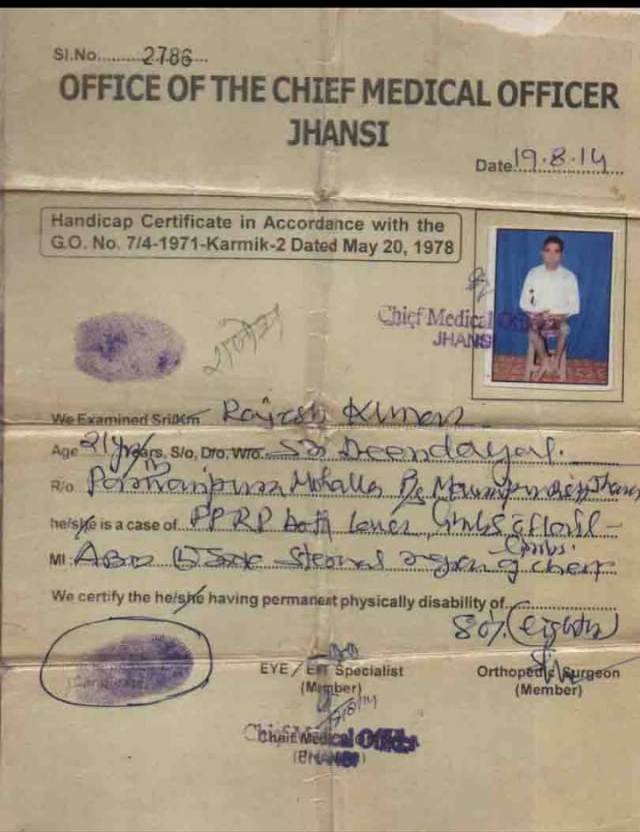 Sl.No. 2786
OFFICE OF THE CHIEF MEDICAL OFFICER
JHANSI
Date 19.8.14
Handicap Certificate in Accordance with the
G.O. No. 7/4-1971-Karmik-2 Dated May 20, 1978
Chief Medical
JHANSI
We Examined Sri/Km Rajesh Kumar
Age 21 Yrs/Years, S/o, D/o, W/o. Sri Deendayal.
R/o. Mohalla
he/she is a case of PPRP both lower limbs
MI. side sternal region of chest
We certify the he/she having permanent physically disability of
80% (eighty)
EYE / ENT Specialist
(Member)
Orthopedic Surgeon
(Member)
Chief Medical Officer
(JHANSI)